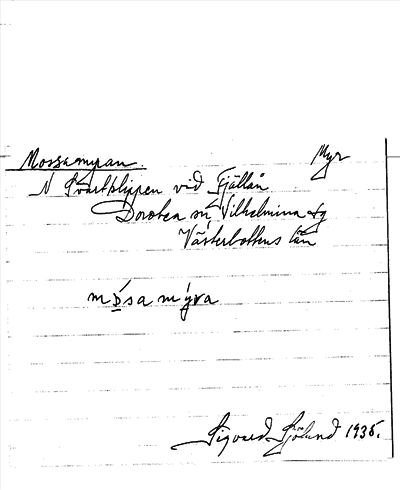 Mossamyran. Myr
N Svartklippen vid Fjällån
Dorotea sn, Vilhelmina tg
Västerbottens län
mò̱sa mýra
Sigvard Sjölund 1935.